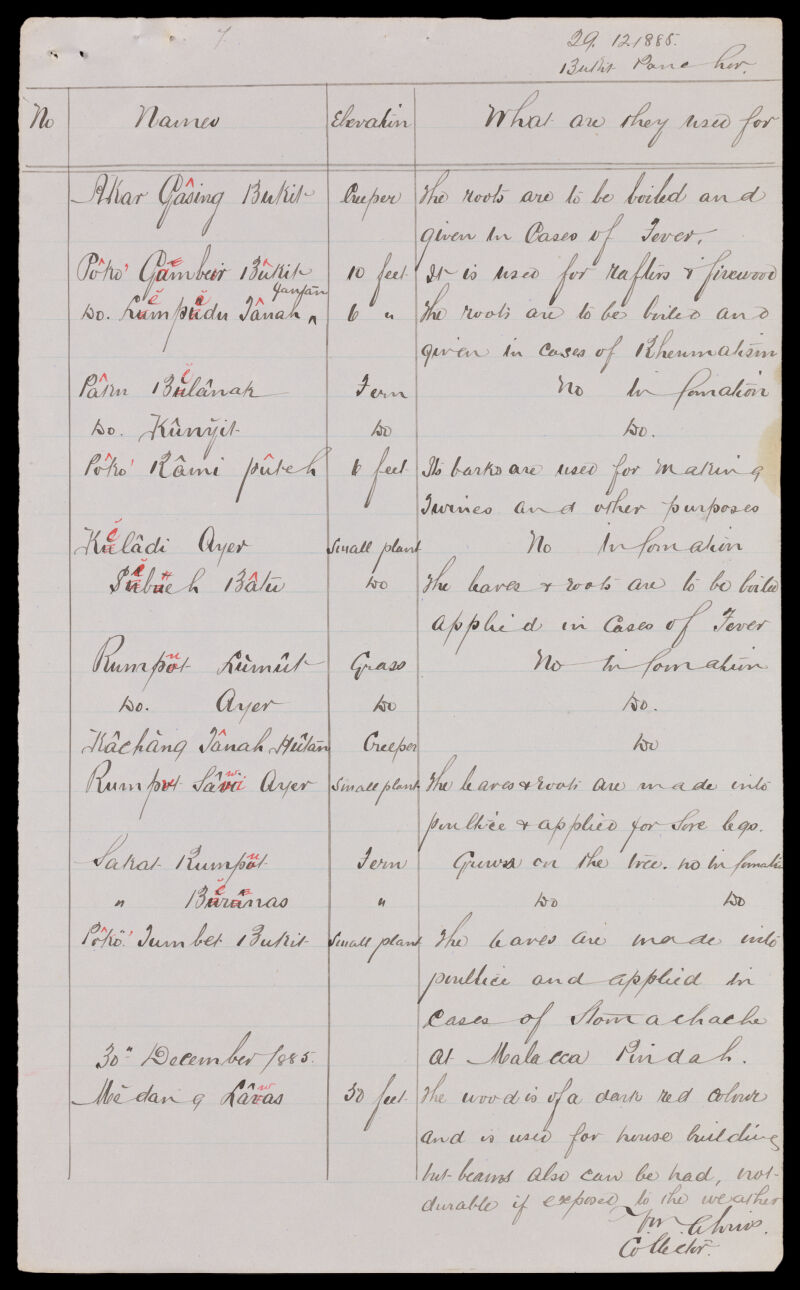 7.
29. 12. 1885.
Bukit Panchor.
No Names Elevation What are they used for
Akar Gâsing Bukit Creeper The roots are to be boiled and
given in Cases of Fever.
Pôko' Gambeir Bûkit 10 feet It is used for rafters & firewood
Do. Lĕmpĕdu Tânah Janján 6 " The roots are to be boiled and
given in cases of Rheumatism
Pâku Bĕlânak Fern No Information
Do. Kûnyit Do Do.
Pôko' Râmi pûteh 6 feet Its barks are used for making
Twines and other purposes
Kĕlâdi Ayer Small plant No Information
Bâtu Do The leaves & roots are to be boiled
applied in Cases of Fever
Rumput Lûmût Grass No Information
Do. Ayer Do Do.
Kâchâng Tânah Hûtan Creeper Do
Rumpot Sâwi Ayer Small plant The leaves & roots are made into
poultice & applied for Sore legs.
Sakat Rumput Fern Grows on the tree. no Information
" Bĕrânas " Do Do
Pôkô' Jumbet Bukit Small plant The leaves are made into
poultice and applied in
cases of Stomachache
30" December /885. at Malacca Pindah.
Mĕdang Lâwas 30 feet The wood is of a dark red colour
and is used for house building
but beams also can be had, not
durable if exposed to the weather
Collector.